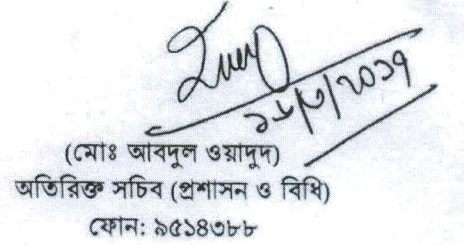 (মোঃ আবদুল ওয়াদুদ)
অতিরিক্ত সচিব (প্রশাসন ও বিধি)
ফোন: ৯৫১৪৩৮৮